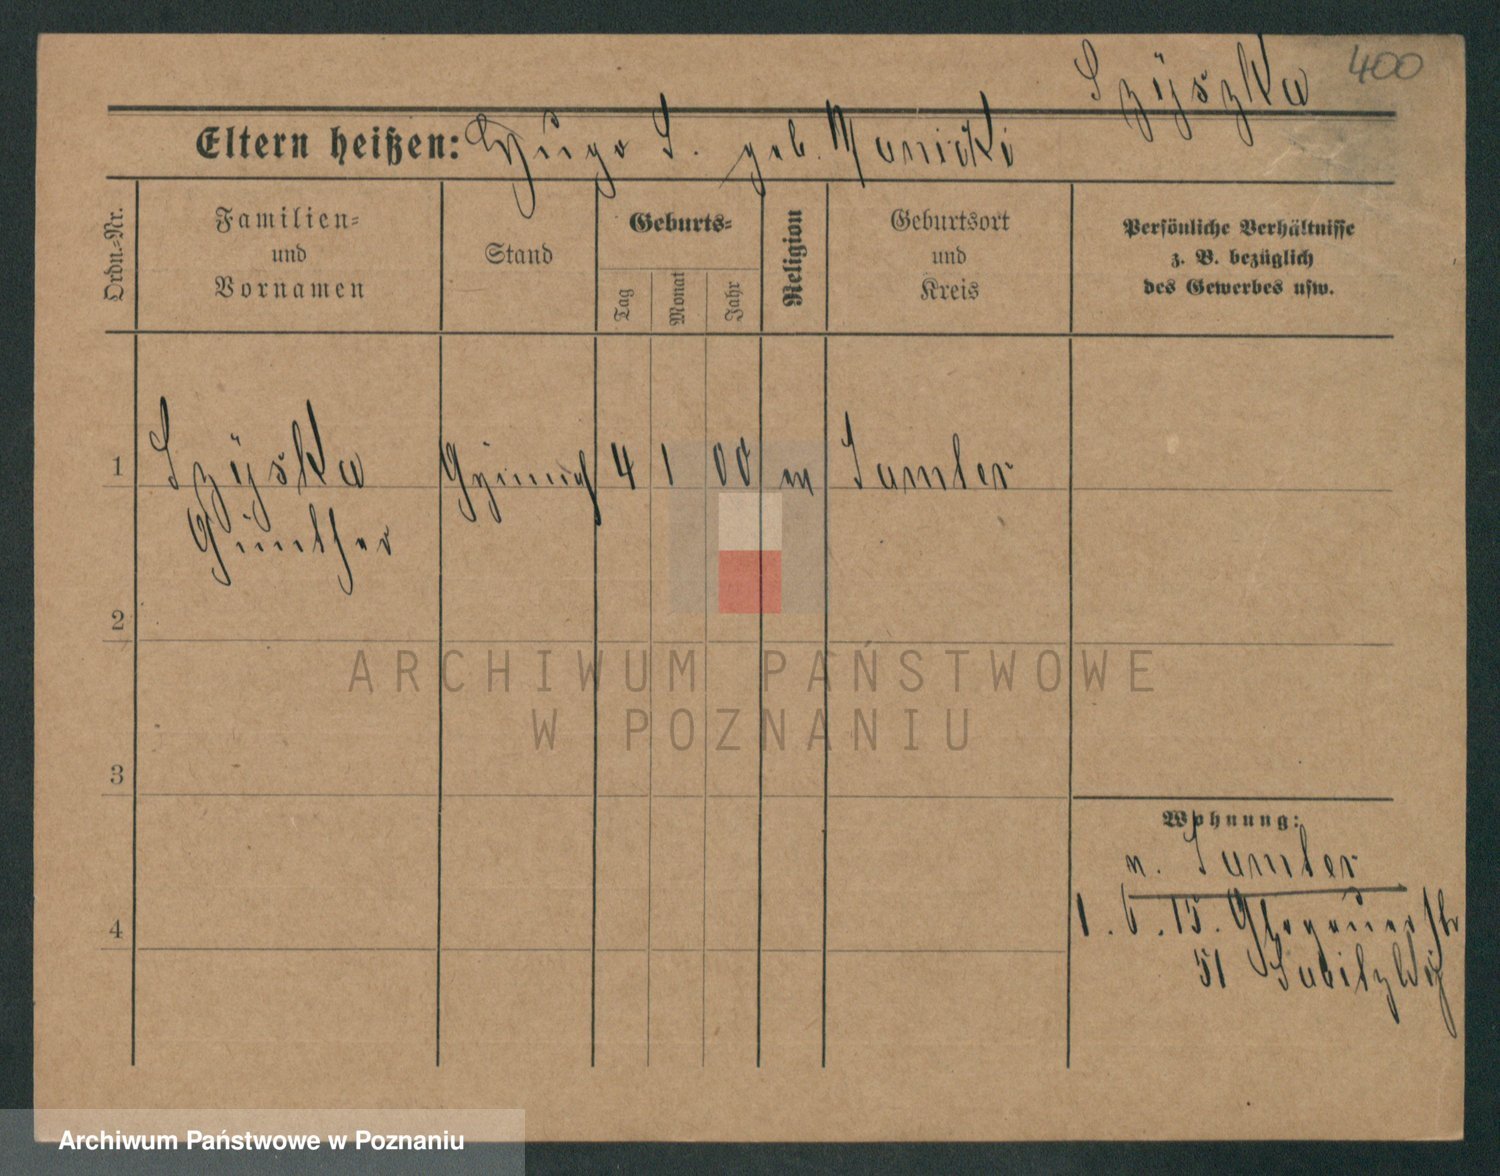 400
Szÿszka
Eltern heißen: Hugo S. geb. Manicki
Ordn.-Nr.
Familien-
und
Vornamen
Stand
Geburts-
Tag
Monat
Jahr
Religion
Geburtsort
und
Kreis
Persönliche Verhältnisse
z. B. bezüglich
des Gewerbes usw.
1 Szÿska 4 1 00 Samter
Günther
2
3
4
Wohnung:
n. Samter
1. 6. 15. Glogauerstr
51
ARCHIWUM PAŃSTWOWE
W POZNANIU
Archiwum Państwowe w Poznaniu